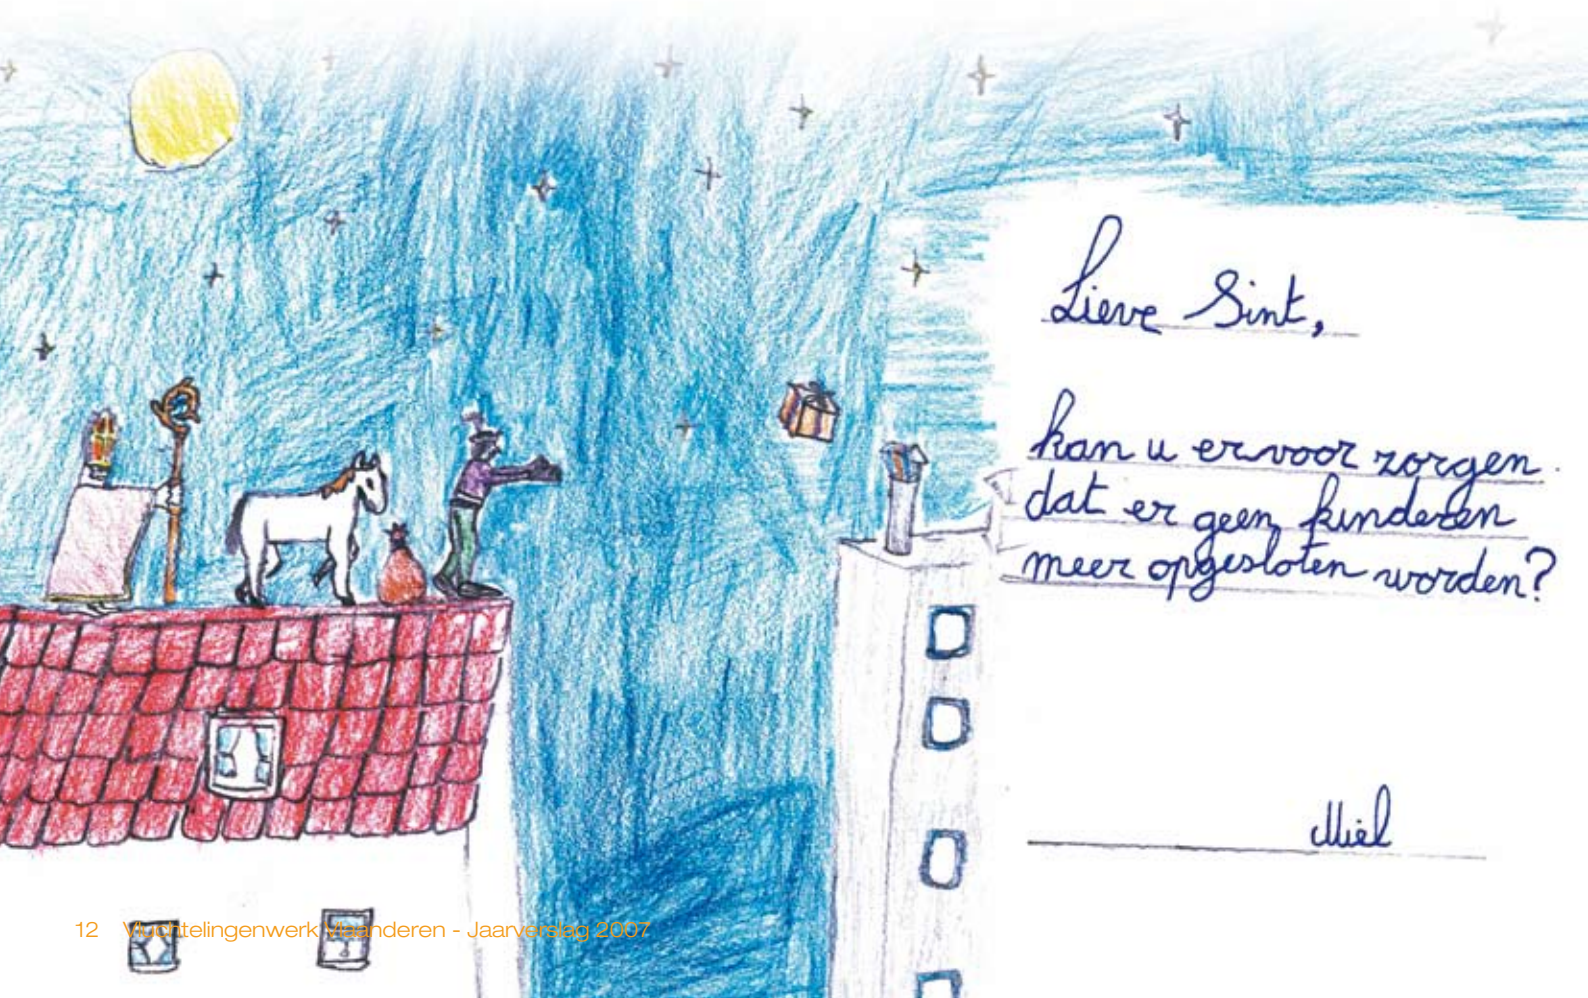 Lieve Sint,
kan u ervoor zorgen
dat er geen kinderen
meer opgesloten worden?
Miel
12 Vluchtelingenwerk Vlaanderen - Jaarverslag 2007